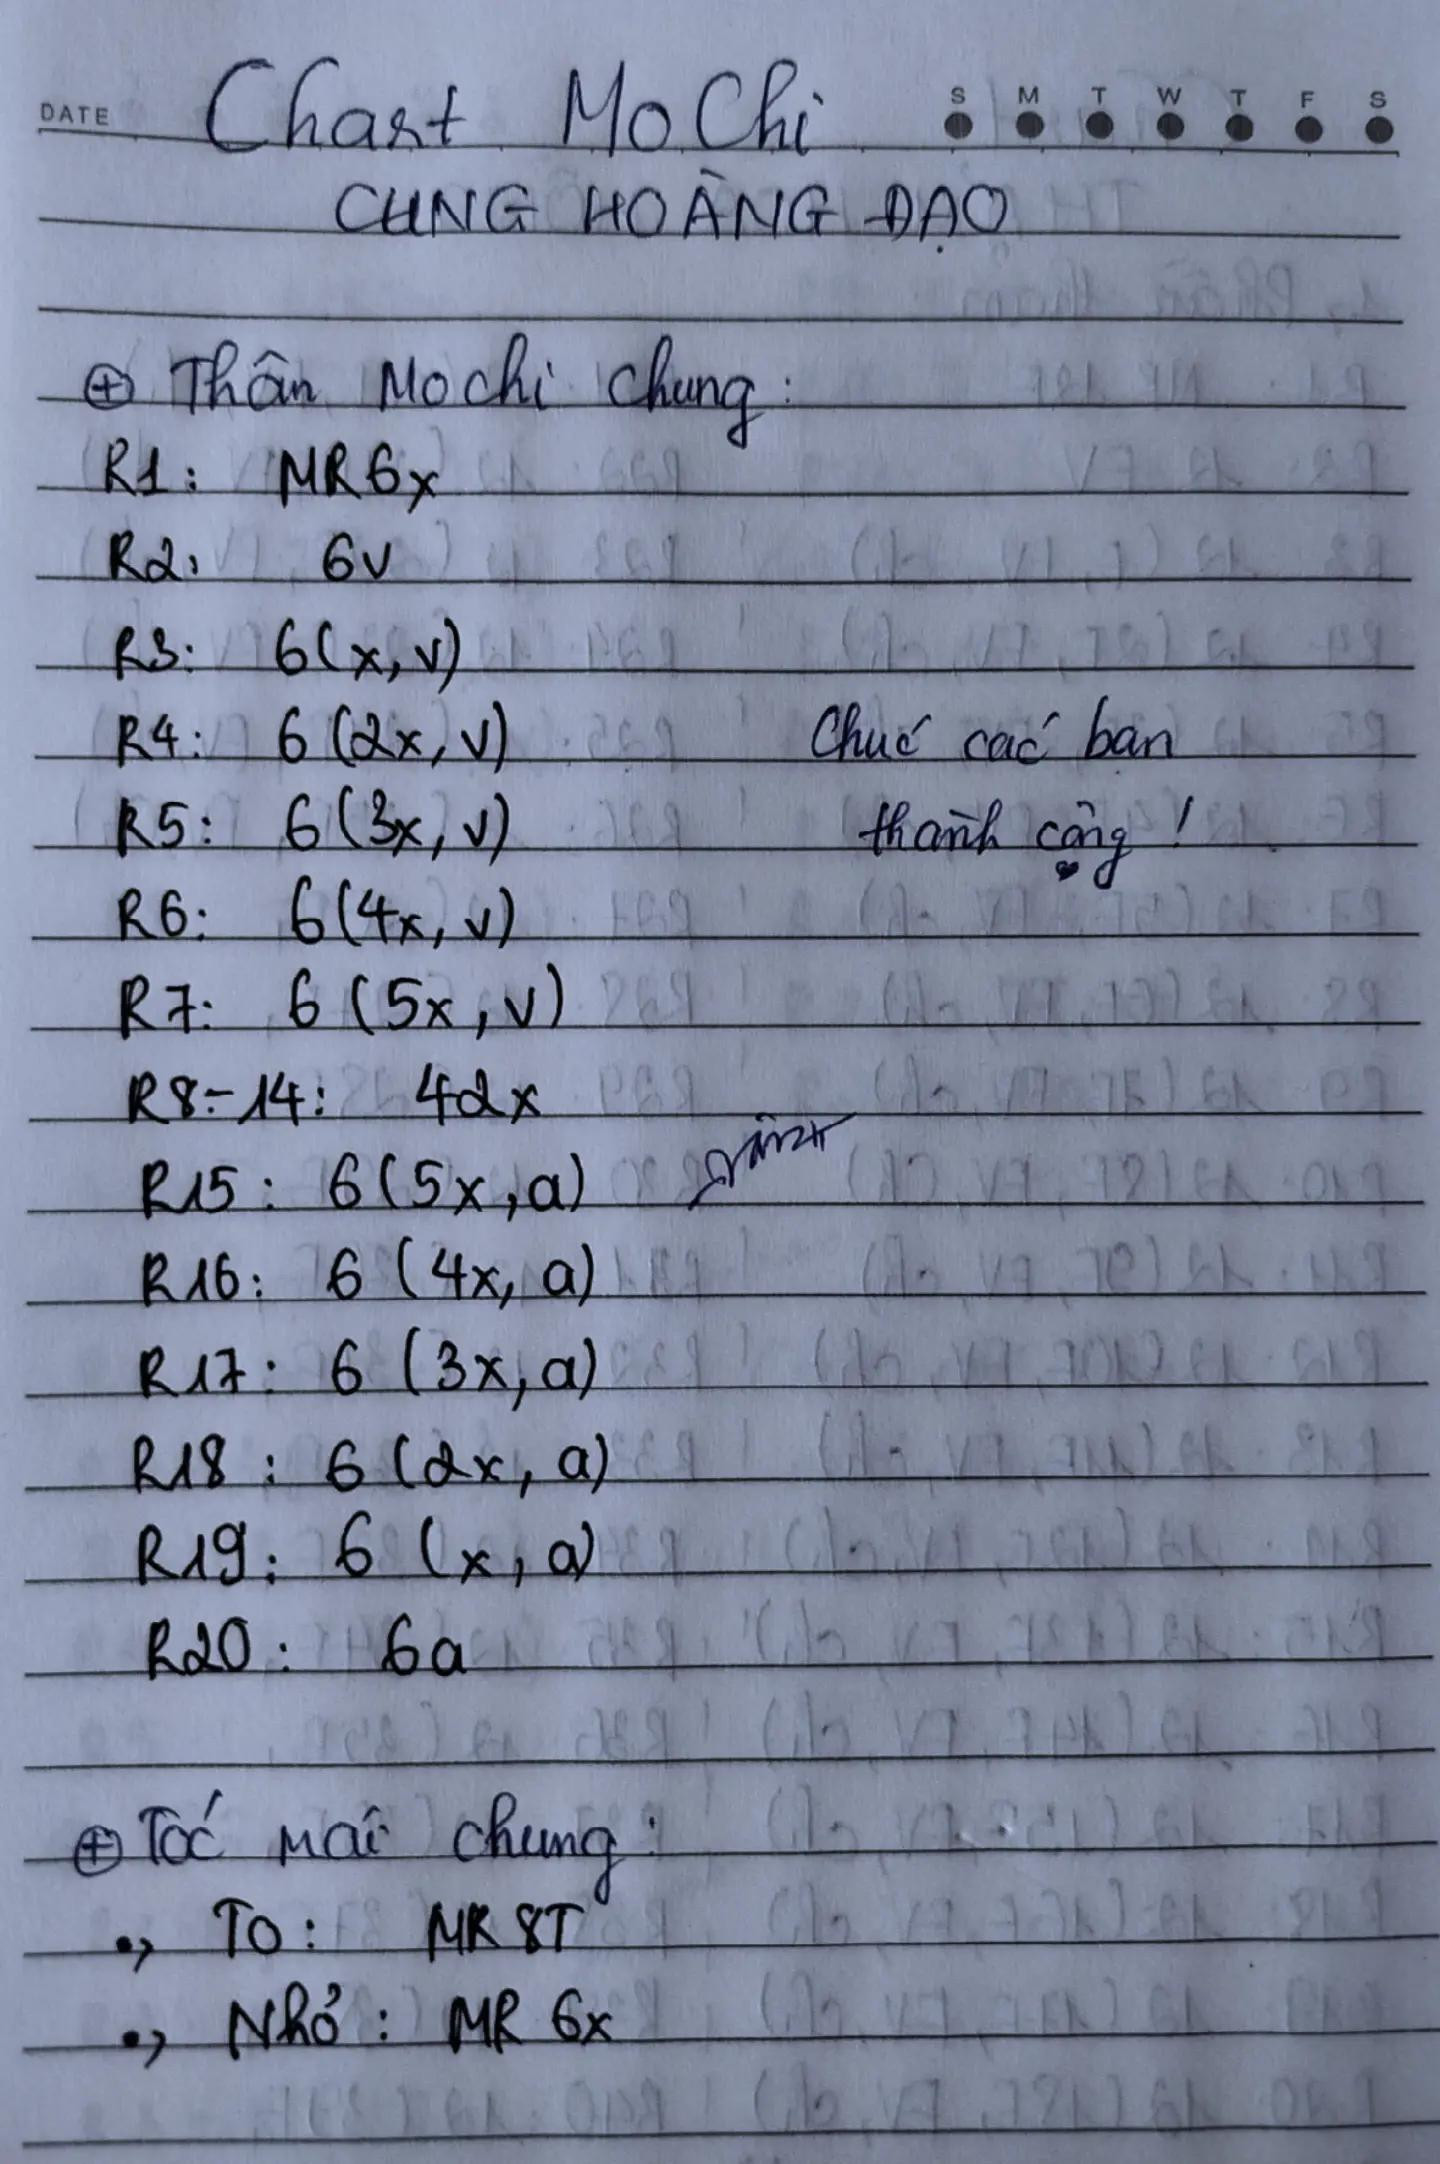 DATE Chart MoChi S M T W T F S
CUNG HOÀNG ĐẠO
⊕ Thân Mochi chung:
R1: MR6x
R2: 6v
R3: 6(x, v)
R4: 6(2x, v)
R5: 6(3x, v)
R6: 6(4x, v)
R7: 6(5x, v)
R8-14: 42x
R15: 6(5x, a)
R16: 6(4x, a)
R17: 6(3x, a)
R18: 6(2x, a)
R19: 6(x, a)
R20: 6a
Chúc các bạn
thành công!
⊕ Tóc mái chung:
•, TO: MR 8T
•, Nhỏ: MR 6x